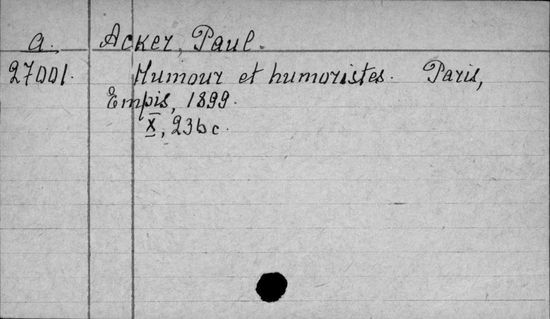 a. Acker, Paul.
27001. Humour et humoristes. Paris,
Empis, 1899.
X, 236 c.